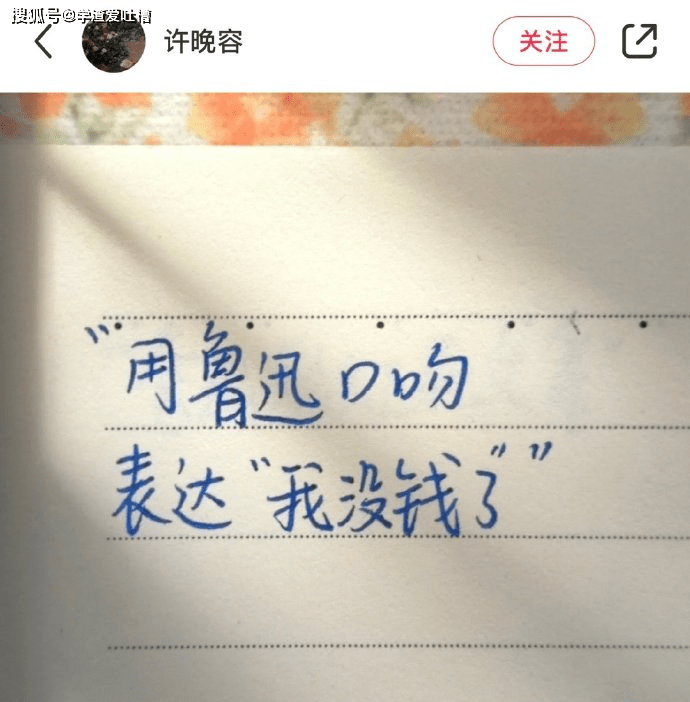 搜狐号@学渣爱吐槽
许晚容
关注
“用鲁迅口吻
表达“我没钱了””